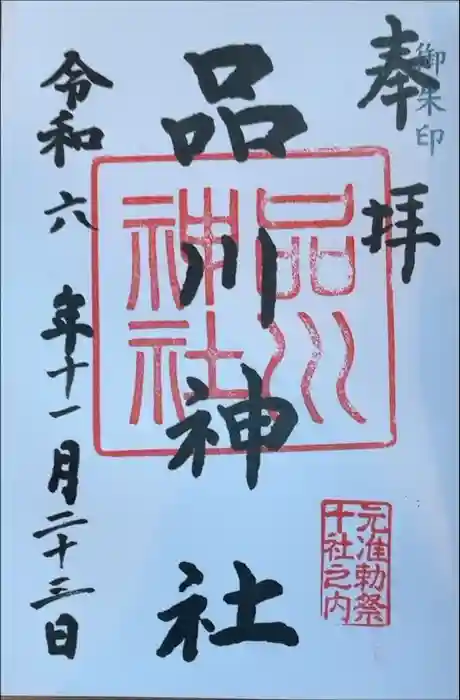 御朱印
奉拝
品川神社
品川
神社
元准勅祭
十社之内
令和六年十一月二十三日